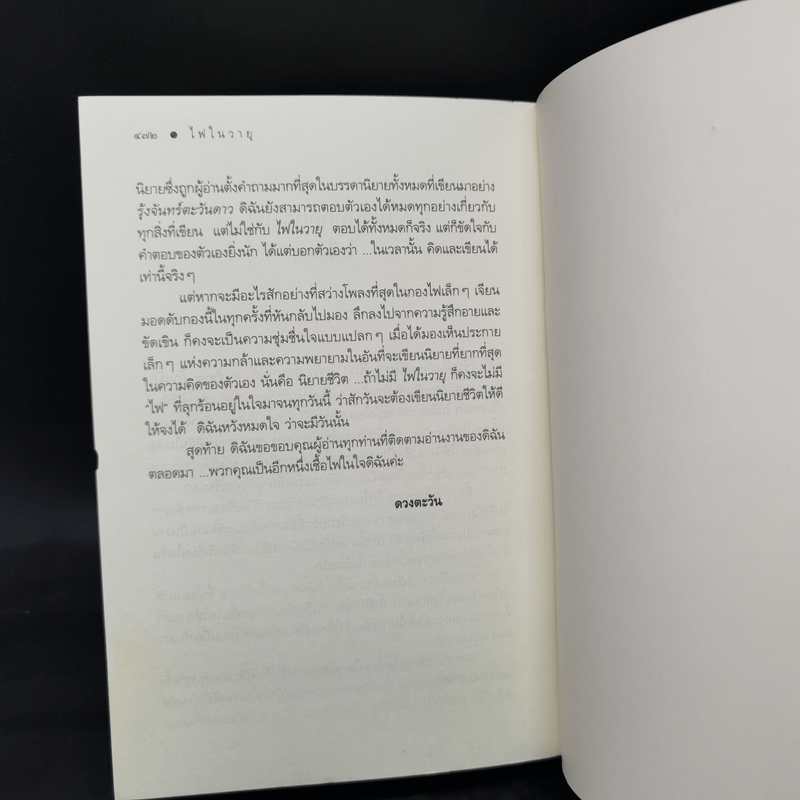 ๔๗๒ ● ไฟในวายุ
นิยายซึ่งถูกผู้อ่านตั้งคำถามมากที่สุดในบรรดานิยายทั้งหมดที่เขียนมาอย่าง
รุ้งจันทร์ตะวันดาว ดิฉันยังสามารถตอบตัวเองได้หมดทุกอย่างเกี่ยวกับ
ทุกสิ่งที่เขียน แต่ไม่ใช่กับ ไฟในวายุ ตอบได้ทั้งหมดก็จริง แต่ก็ขัดใจกับ
คำตอบของตัวเองยิ่งนัก ได้แต่บอกตัวเองว่า ...ในเวลานั้น คิดและเขียนได้
เท่านี้จริงๆ
แต่หากจะมีอะไรสักอย่างที่สว่างโพลงที่สุดในกองไฟเล็กๆ เจียน
มอดดับกองนี้ในทุกครั้งที่หันกลับไปมอง ลึกลงไปจากความรู้สึกอายและ
ขัดเขิน ก็คงจะเป็นความชุ่มชื่นใจแบบแปลกๆ เมื่อได้มองเห็นประกาย
เล็กๆ แห่งความกล้าและความพยายามในอันที่จะเขียนนิยายที่ยากที่สุด
ในความคิดของตัวเอง นั่นคือ นิยายชีวิต ...ถ้าไม่มี ไฟในวายุ ก็คงจะไม่มี
"ไฟ" ที่ลุกร้อนอยู่ในใจมาจนทุกวันนี้ ว่าสักวันจะต้องเขียนนิยายชีวิตให้ดี
ให้จงได้ ดิฉันหวังหมดใจ ว่าจะมีวันนั้น
สุดท้าย ดิฉันขอขอบคุณผู้อ่านทุกท่านที่ติดตามอ่านงานของดิฉัน
ตลอดมา ...พวกคุณเป็นอีกหนึ่งเชื้อไฟในใจดิฉันค่ะ
ดวงตะวัน